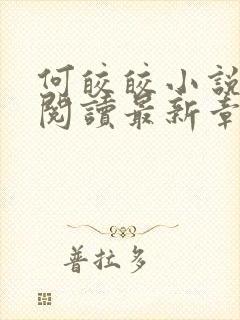 何皎皎小說
閱讀最新章
普拉多